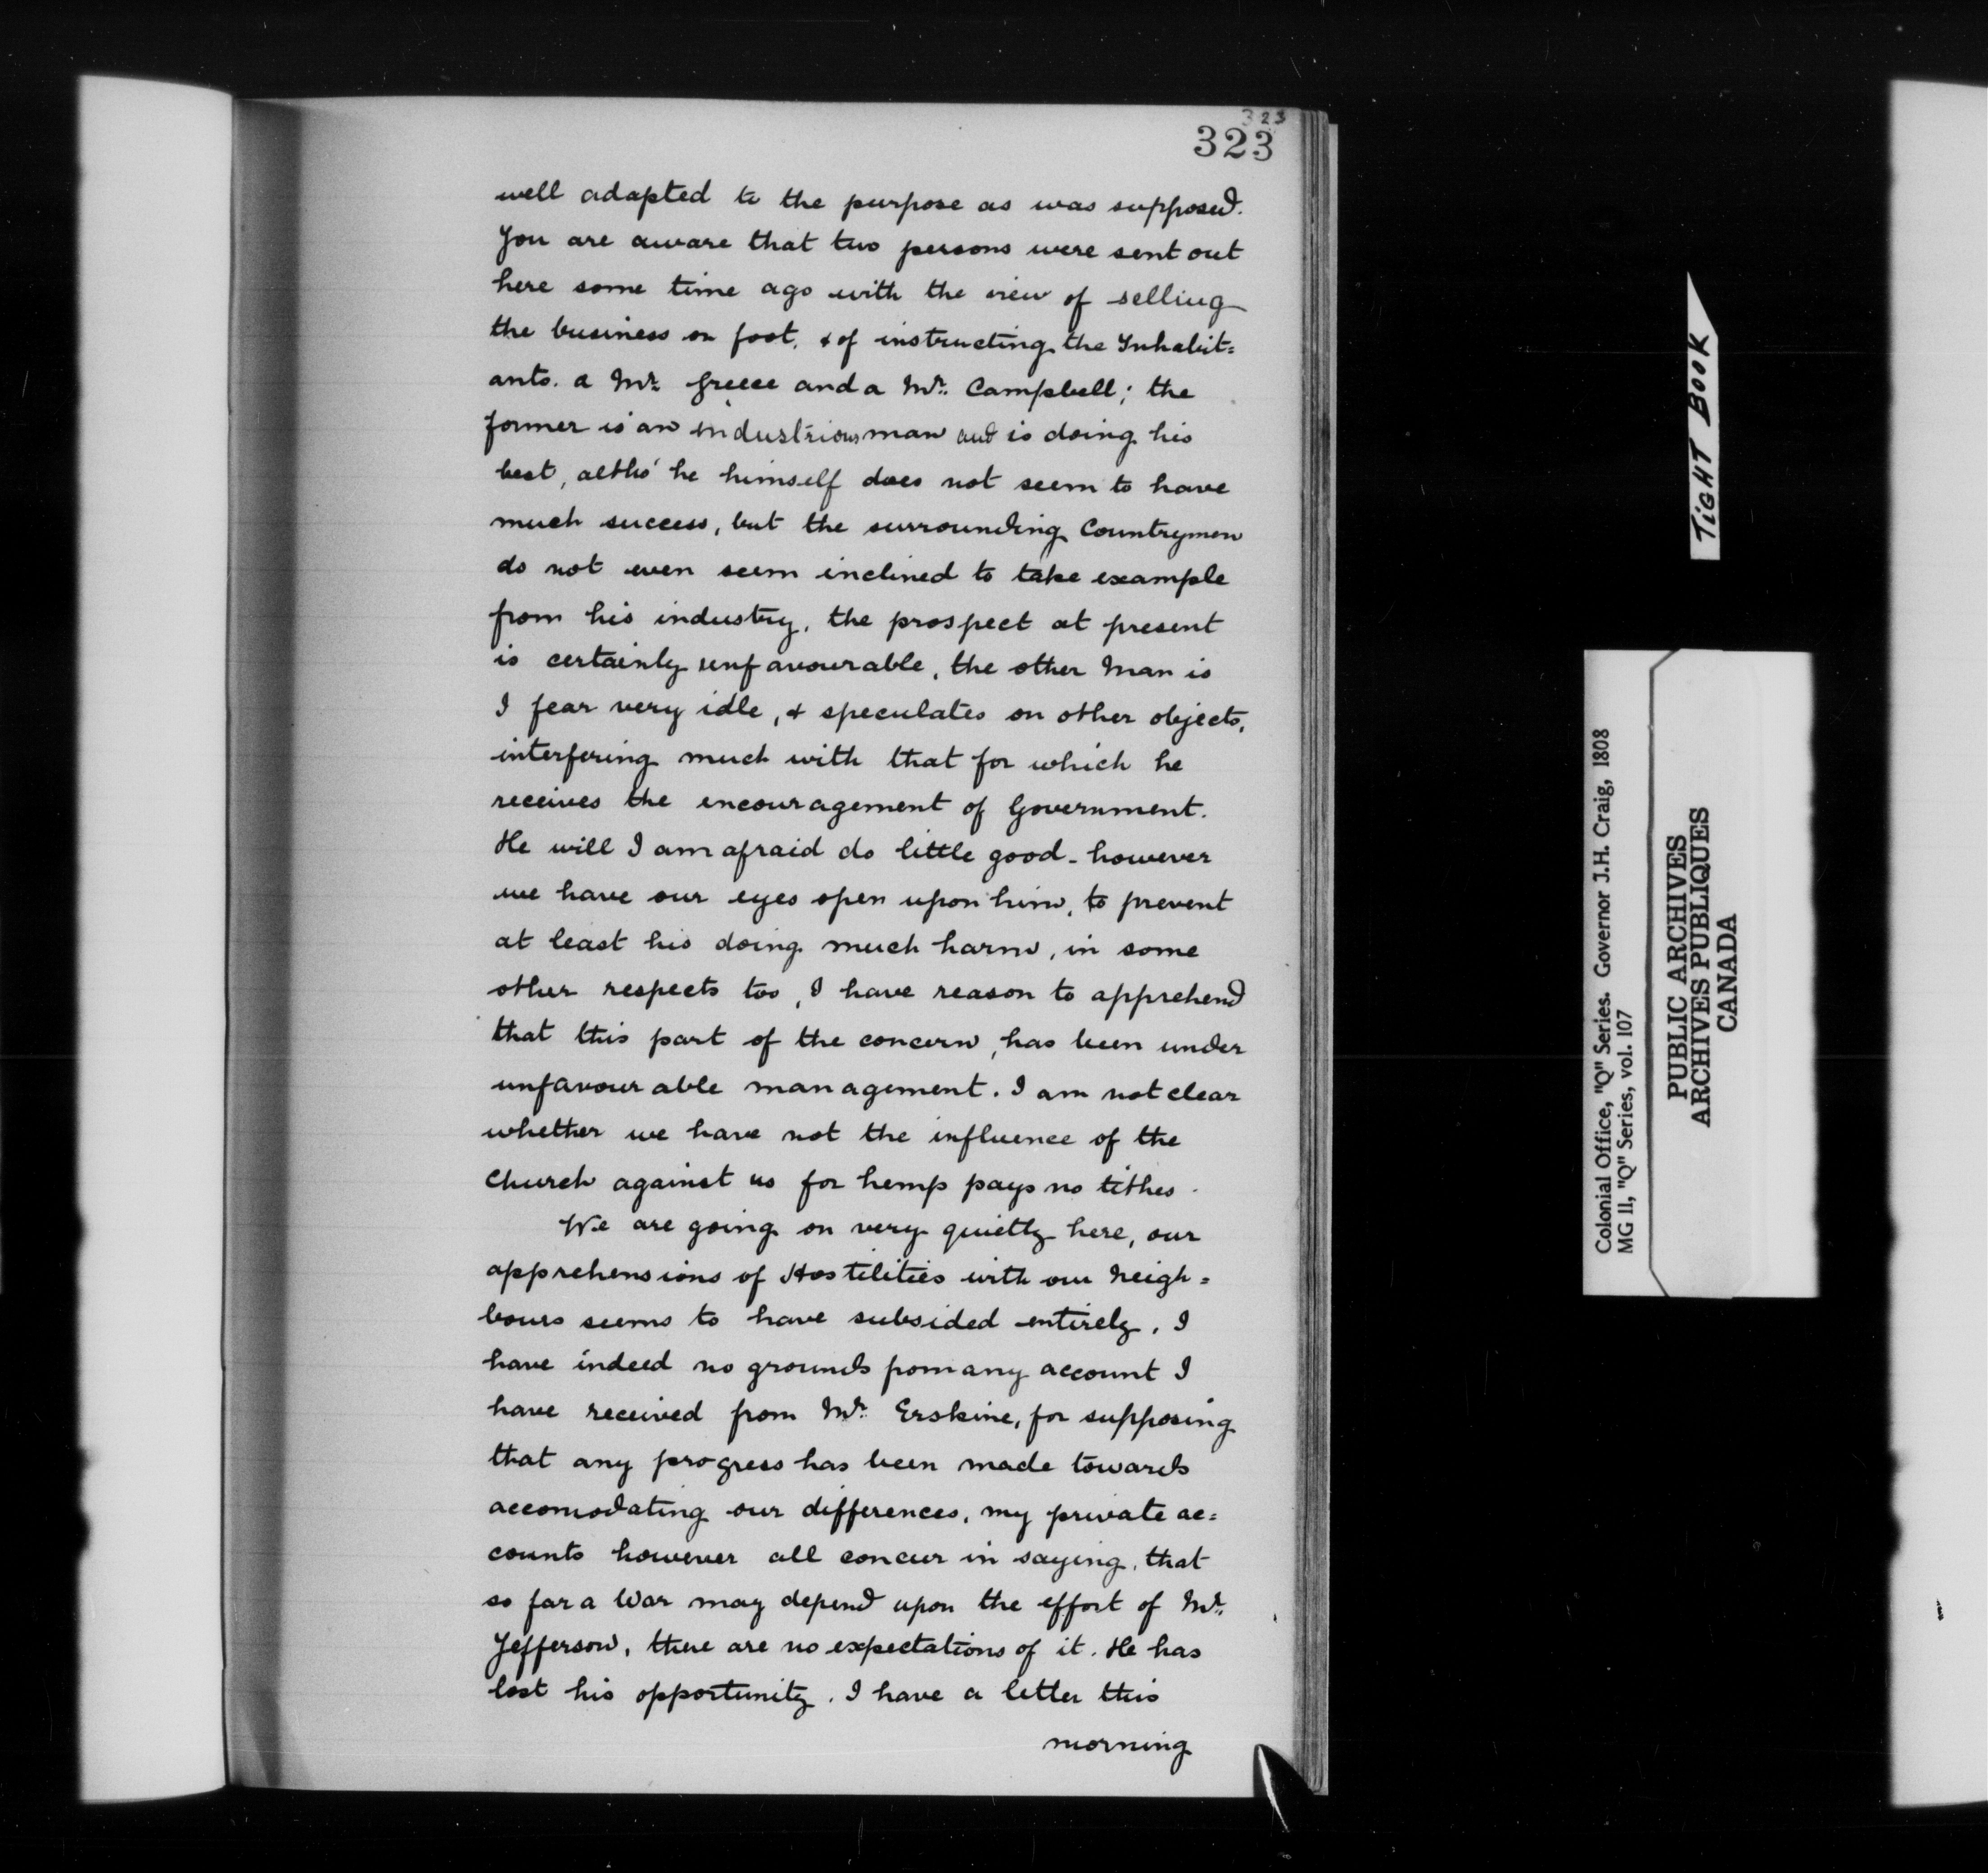 323
323
well adapted to the purpose as was supposed.
You are aware that two persons were sent out
here some time ago with the view of selling
the business on foot, & of instructing the Inhabit=
ants. a Mr. Greece and a Mr. Campbell; the
former is an industrious man and is doing his
best, altho' he himself does not seem to have
much success, but the surrounding Countrymen
do not even seem inclined to take example
from his industry, the prospect at present
is certainly unfavourable, the other Man is
I fear very idle, & speculates on other objects,
interfering much with that for which he
receives the encouragement of Government.
He will I am afraid do little good - however
we have our eyes open upon him, to prevent
at least his doing much harm, in some
other respects too, I have reason to apprehend
that this part of the concern, has been under
unfavourable management. I am not clear
whether we have not the influence of the
Church against us for hemp pays no tithes.
We are going on very quietly here, our
apprehensions of Hostilities with our Neigh=
bours seems to have subsided entirely, I
have indeed no grounds from any account I
have received from Mr. Erskine, for supposing
that any progress has been made towards
accomodating our differences, my private ac=
counts however all concur in saying, that
so far a War may depend upon the effort of Mr.
Jefferson, there are no expectations of it. He has
lost his opportunity. I have a letter this
morning
TIGHT BOOK
Colonial Office, "Q" Series. Governor J.H. Craig, 1808
MG 11, "Q" Series, vol. 107
PUBLIC ARCHIVES
ARCHIVES PUBLIQUES
CANADA